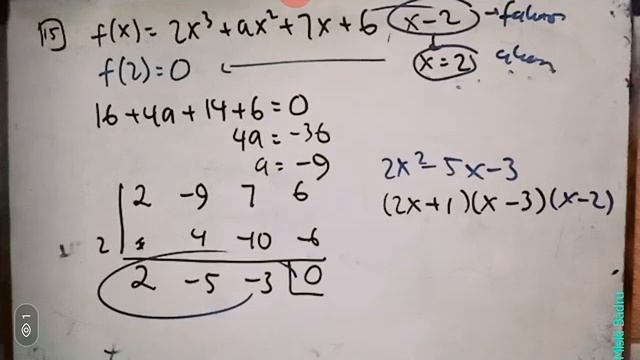 15) f(x) = 2x³ + ax² + 7x + 6 x-2 → faktor
f(2) = 0 x = 2 akar
16 + 4a + 14 + 6 = 0
4a = -36
a = -9
2x² - 5x - 3
(2x+1)(x-3)(x-2)
2 -9 7 6
2 4 -10 -6
2 -5 -3 0
1
Miski Badru